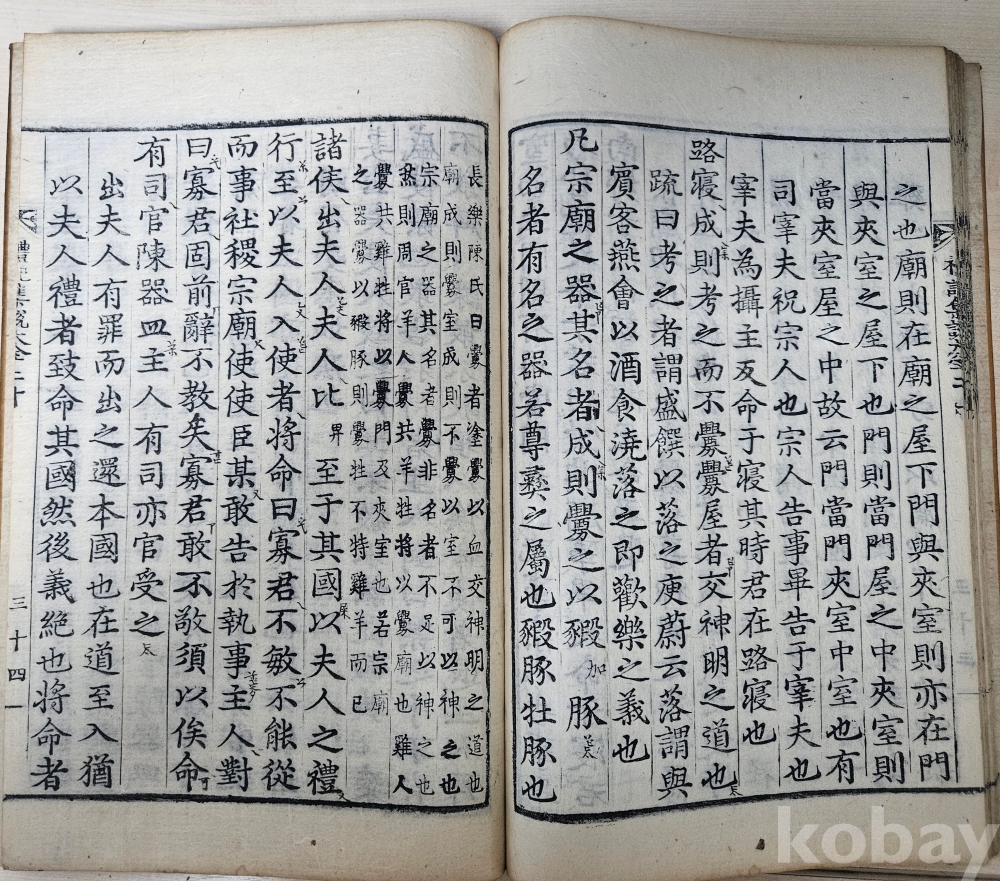 之也廟則在廟之屋下門與夾室則亦在門
與夾室之屋下也門則當門屋之中夾室則
當夾室屋之中故云門當門夾室中室也有
司宰夫祝宗人也宗人告事畢告于宰夫也
宰夫為攝主反命于寢其時君在路寢也
路寢成則考之而不釁釁屋者交神明之道也
疏曰考之者謂盛饌以落之庾蔚云落謂與
賓客燕會以酒食澆落之即歡樂之義也
凡宗廟之器其名者成則釁之以豭加豚
名者有名之器若尊彝之屬也豭豚牡豚也
長樂陳氏曰釁者塗釁以血交神明之道也
廟成則釁室成則不釁以室不可以神之也
宗廟之器其名者釁非名者不足以神之也
然則周官羊人釁共羊牲將以釁廟也雞人
釁共雞牲將以釁門及夾室也若宗廟
之器釁以豭豚則釁牲不特雞羊而已
諸侯出夫人夫人比畀至于其國以夫人之禮
行至以夫人入使者將命曰寡君不敏不能從
而事社稷宗廟使使臣某敢告於執事主人對
曰寡君固前辭不教矣寡君敢不敬須以俟命
有司官陳器皿主人有司亦官受之
出夫人有罪而出之還本國也在道至入猶
以夫人禮者致命其國然後義絕也將命者
禮記集說大全二十
三十四
kobay